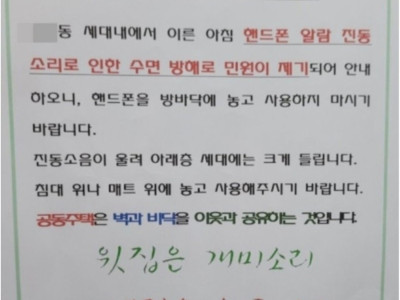 동 세대내에서 이른 아침 핸드폰 알람 진동
소리로 인한 수면 방해로 민원이 제기되어 안내
하오니, 핸드폰을 방바닥에 놓고 사용하지 마시기
바랍니다.
진동소음이 울려 아래층 세대에는 크게 들립니다.
침대 위나 매트 위에 놓고 사용해주시기 바랍니다.
공동주택은 벽과 바닥을 이웃과 공유하는 것입니다.
윗집은 개미소리